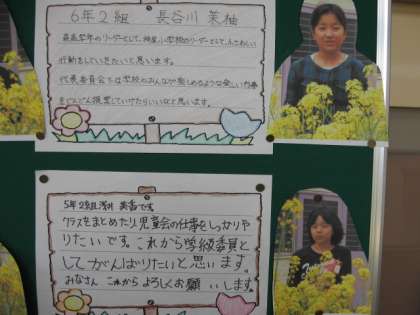 6年2組 長谷川 茉柚
最高学年のリーダーとして、神原小学校のリーダーとして、ふさわしい
行動をしていきたいと思います。
代表委員会では学校のみんなが楽しめるような楽しい行事
をどんどん提案していけたらいいなと思います。
5年2組 浅井 美香です
クラスをまとめたり、児童会の仕事をしっかりや
りたいです。これから学級委員と
してがんばりたいと思います。
みなさん これから よろしくお願いします。